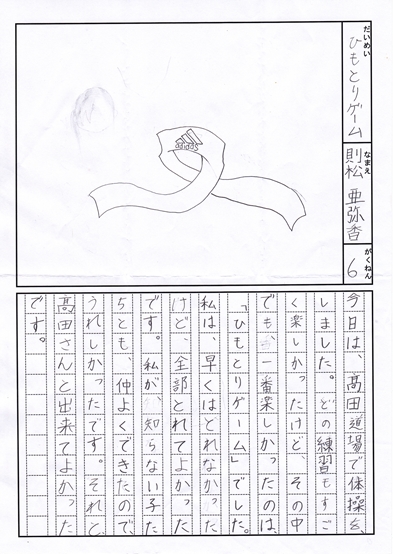 だいめい
ひもとりゲーム
なまえ
則松 亜弥香
がくねん
6
adidas
今日は、髙田道場で体操を、
しました。どの練習もすご
く楽しかったけど、その中
でも、一番楽しかったのは、
「ひもとりゲーム」でした。
私は、早くはとれなかった
けど、全部とれてよかった
です。私が、知らない子た
ちとも、仲よくできたので、
うれしかったです。それと、
髙田さんと出来てよかった
です。